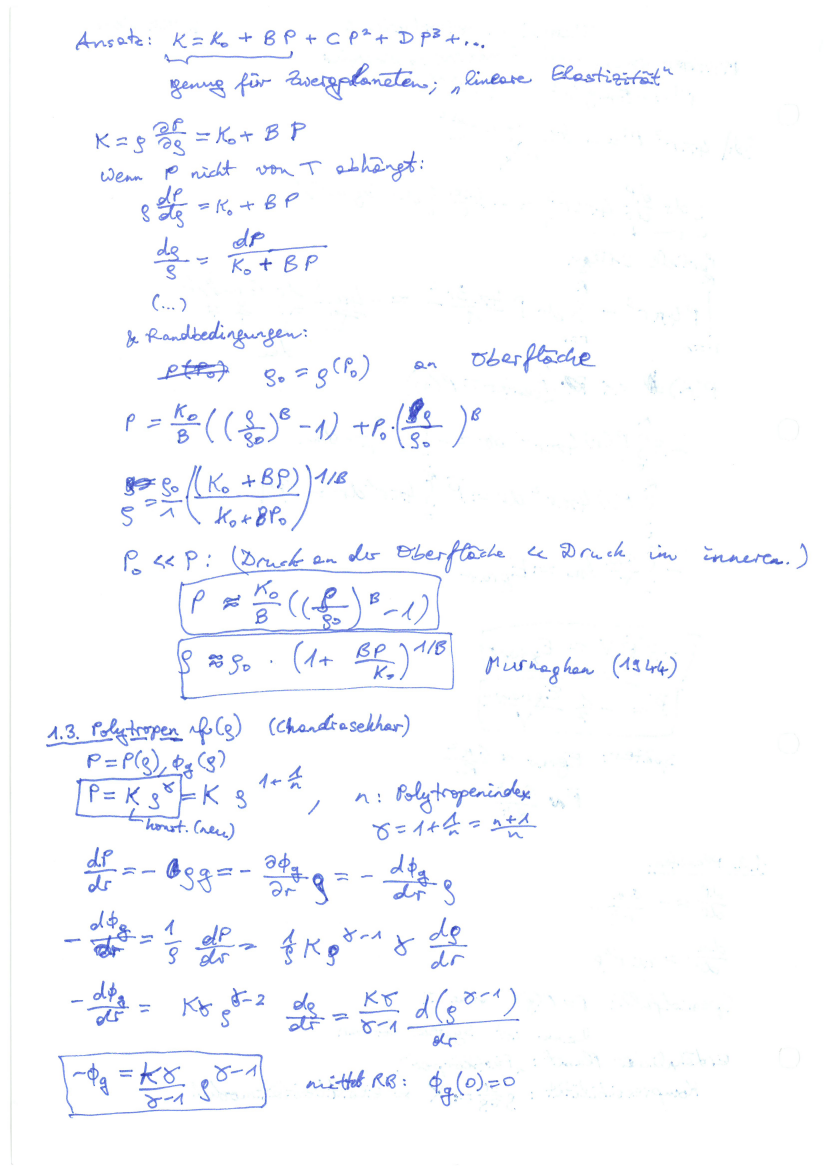 Ansatz: K = K₀ + B P + C P² + D P³ + ...
genug für Zwergplaneten; „lineare Elastizität"
K = ρ ∂P/∂ρ = K₀ + B P
Wenn P nicht von T abhängt:
ρ dP/dρ = K₀ + B P
dρ/ρ = dP/(K₀ + B P)
(...)
& Randbedingungen:
ρ₀ = ρ(P₀) an Oberfläche
P = K₀/B ((ρ/ρ₀)^B - 1) + P₀·(ρ/ρ₀)^B
ρ = ρ₀/1 ((K₀ + BP)/(K₀ + BP₀))^1/B
P₀ << P: (Druck an der Oberfläche << Druck im inneren.)
P ≈ K₀/B ((ρ/ρ₀)^B - 1)
ρ ≈ ρ₀ · (1 + BP/K₀)^1/B Murnaghan (1944)
1.3. Polytropen (Chandrasekhar)
P = P(ρ), ϕ_g(ρ)
P = K ρ^γ = K ρ^(1+1/n) , n: Polytropenindex
konst. (neu) γ = 1 + 1/n = (n+1)/n
dP/dr = - ρg = - ∂ϕ_g/∂r ρ = - dϕ_g/dr ρ
- dϕ_g/dr = 1/ρ dP/dr = 1/ρ K ρ^(γ-1) γ dρ/dr
- dϕ_g/dr = Kγ ρ^(γ-2) dρ/dr = Kγ/(γ-1) d(ρ^(γ-1))/dr
-ϕ_g = Kγ/(γ-1) ρ^(γ-1) RB: ϕ_g(0)=0